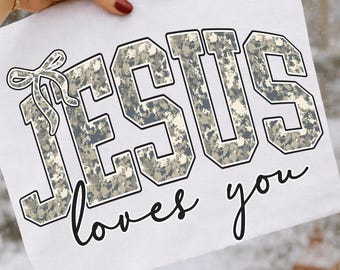 JESUS
loves you